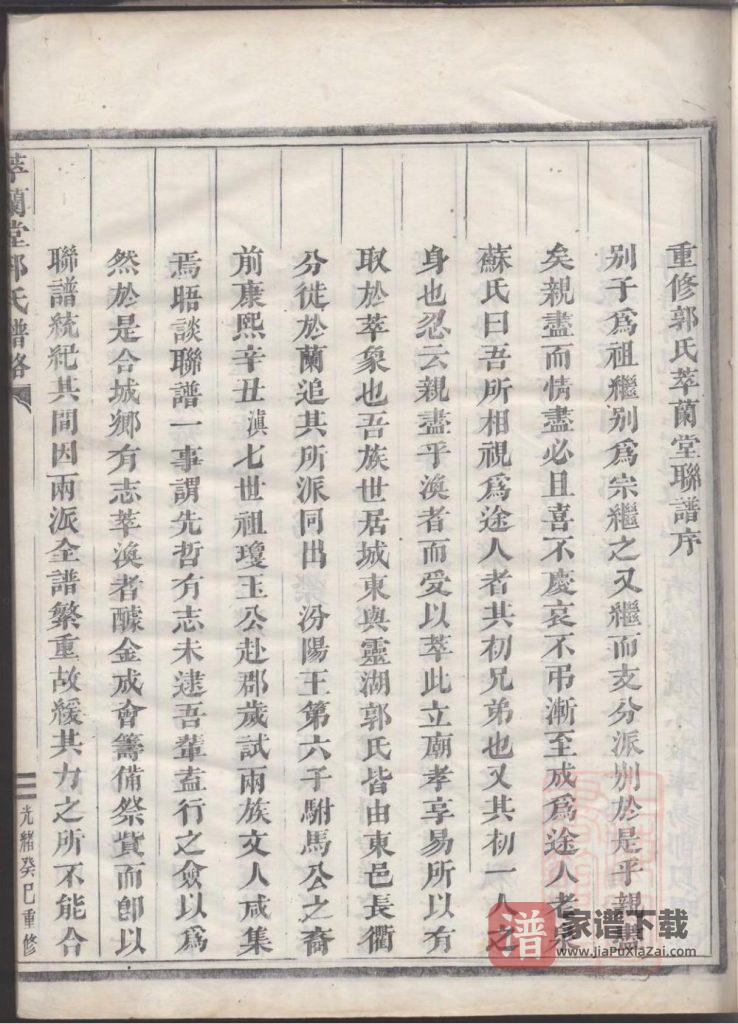 重修郭氏萃蘭堂聯譜序
別子爲祖繼別爲宗繼之又繼而支分派別於是乎親盡
矣親盡而情盡必且喜不慶哀不弔漸至成爲途人者泉
蘇氏曰吾所相視爲途人者其初兄弟也又其初一人之
身也忍云親盡乎渙者而受以萃此立廟孝享易所以有
取於萃象也吾族世居城東與靈湖郭氏皆由東邑長衢
分徙於蘭追其所派同出汾陽王第六子駙馬公之裔
前康熙辛丑滇七世祖瓊玉公赴郡歲試兩族文人咸集
焉晤談聯譜一事謂先哲有志未逮吾輩盍行之僉以爲
然於是合城鄉有志萃渙者醵金成會籌備祭貲而卽以
聯譜統紀其間因兩派全譜繁重故緩其力之所不能合
萃蘭堂郭氏譜略
光緒癸巳重修
譜
家谱下载
www.jiaPuXiaZai.com